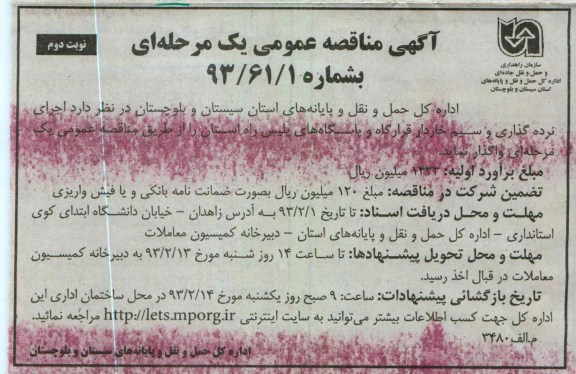 سازمان راهداری
و حمل و نقل جاده‌ای
اداره کل حمل و نقل و پایانه‌های
استان سیستان و بلوچستان
آگهی مناقصه عمومی یک مرحله‌ای
بشماره ۹۳/۶۱/۱
نوبت دوم
اداره کل حمل و نقل و پایانه‌های استان سیستان و بلوچستان در نظر دارد اجرای
نرده گذاری و سیم خاردار قرارگاه و پاسگاه‌های پلیس راه استان را از طریق مناقصه عمومی یک
مرحله‌ای واگذار نماید.
مبلغ برآورد اولیه: میلیون ریال
تضمین شرکت در مناقصه: مبلغ ۱۲۰ میلیون ریال بصورت ضمانت نامه بانکی و یا فیش واریزی
مهلت و محل دریافت اسناد: تا تاریخ ۹۳/۲/۱ به آدرس زاهدان – خیابان دانشگاه ابتدای کوی
استانداری – اداره کل حمل و نقل و پایانه‌های استان – دبیرخانه کمیسیون معاملات
مهلت و محل تحویل پیشنهادها: تا ساعت ۱۴ روز شنبه مورخ ۹۳/۲/۱۳ به دبیرخانه کمیسیون
معاملات در قبال اخذ رسید.
تاریخ بازگشائی پیشنهادات: ساعت: ۹ صبح روز یکشنبه مورخ ۹۳/۲/۱۴ در محل ساختمان اداری این
اداره کل جهت کسب اطلاعات بیشتر می‌توانید به سایت اینترنتی http://iets.mporg.ir مراجعه نمائید.
م.الف۳۴۸۰
اداره کل حمل و نقل و پایانه‌های سیستان و بلوچستان